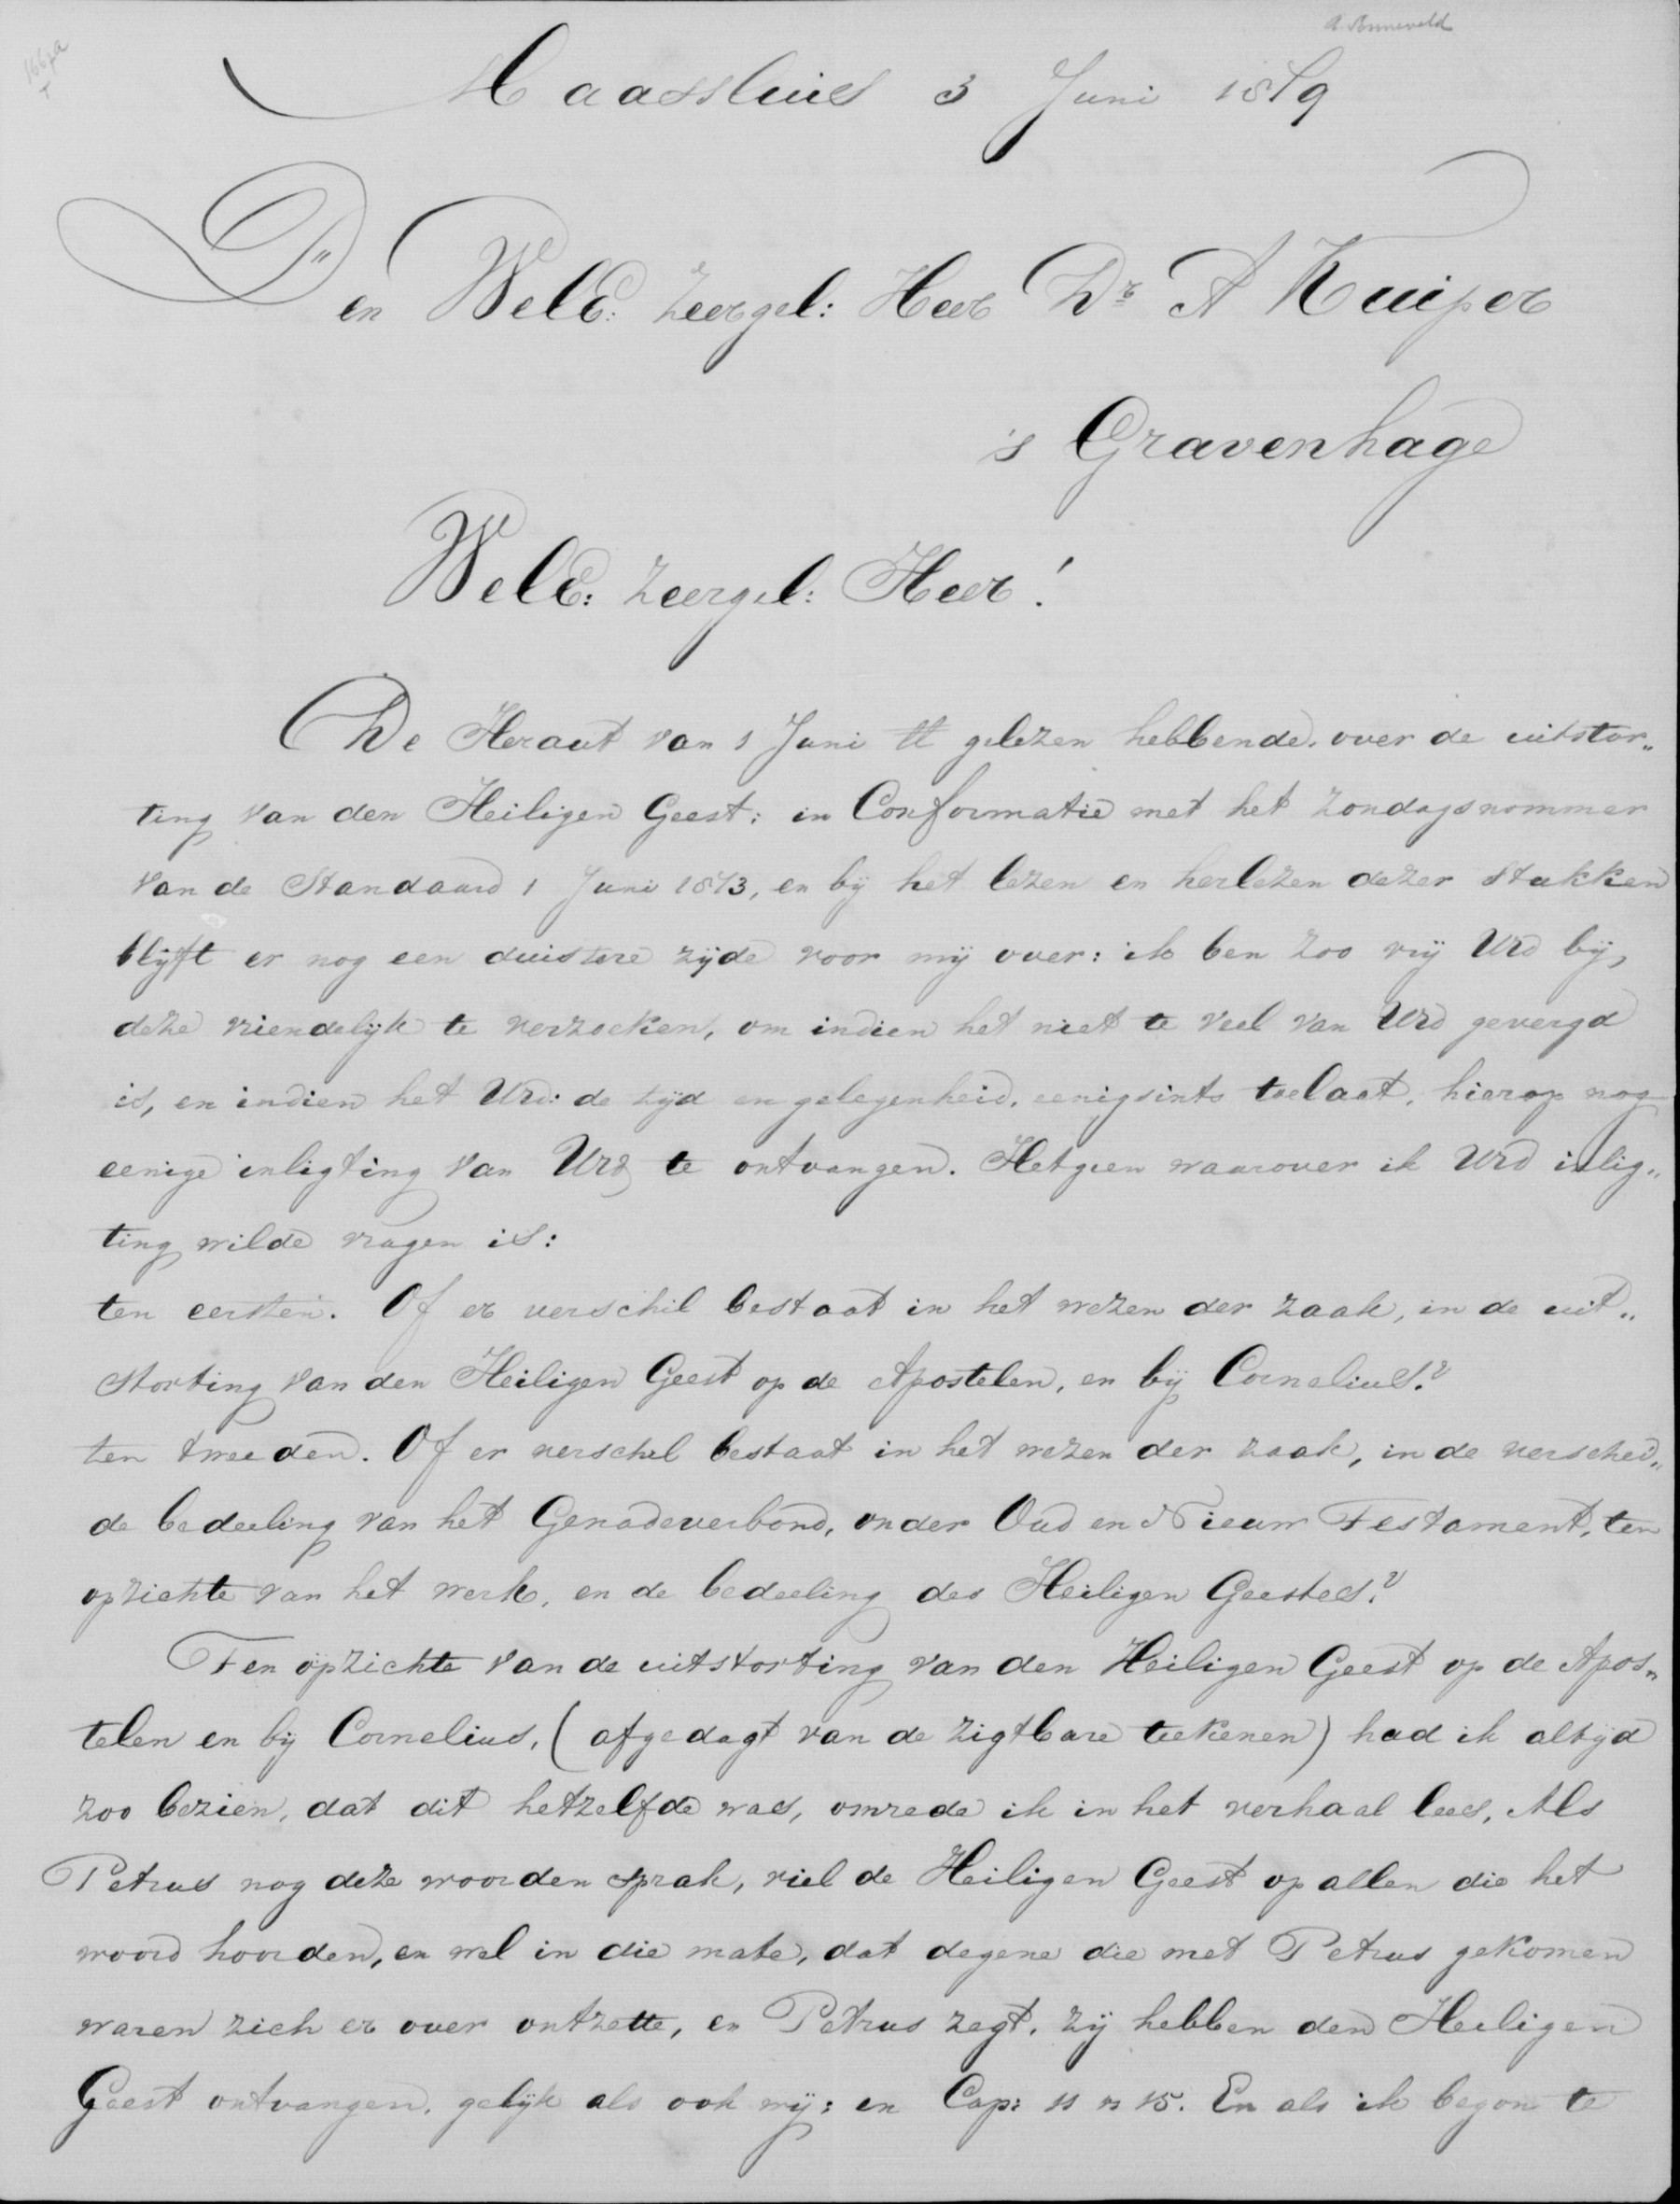 Maassluis 3 Juni 1879
Den WelE: Zeergel: Heer Dr A Kuiper
's Gravenhage
WelE: Zeergel: Heer!
De Heraut van 1 Juni ll gelezen hebbende, over de uitstor„
ting van den Heiligen Geest; in Conformatie met het Zondagsnommer
van de Standaard 1 Juni 1873, en bij het lezen en herlezen dezer stukken
blijft er nog een duistere zijde voor mij over: ik ben zoo vrij Urd bij,
deze vriendelijk te verzoeken, om indien het niet te veel van Urd gevergd
is, en indien het Urd: de tijd en gelegenheid, eenigsints toelaat, hierop nog
eenige inligting van Urd te ontvangen. Hetgeen waarover ik Urd inlig„
ting wilde vragen is:
ten eersten. Of er verschil bestaat in het wezen der zaak, in de uit„
storting van den Heiligen Geest op de Apostelen, en bij Cornelius?
ten tweeden. Of er verschil bestaat in het wezen der zaak, in de verscheid„
de bedeeling van het Genadeverbond, onder Oud en Nieuw Testament, ten
opzichte van het werk, en de bedeeling des Heiligen Geestes?
Ten opzichte van de uitstorting van den Heiligen Geest op de Apos„
telen en bij Cornelius, (afgedagt van de zigtbare teekenen) had ik altijd
zoo bezien, dat dit hetzelfde was, omrede ik in het verhaal lees, Als
Petrus nog deze woorden sprak, viel de Heiligen Geest op allen die het
woord hoorden, en wel in die mate, dat degene die met Petrus gekomen
waren zich er over ontzette, en Petrus zegt, zij hebben den Heiligen
Geest ontvangen, gelijk als ook wij; en Cap: 11 vs 15. En als ik begon te